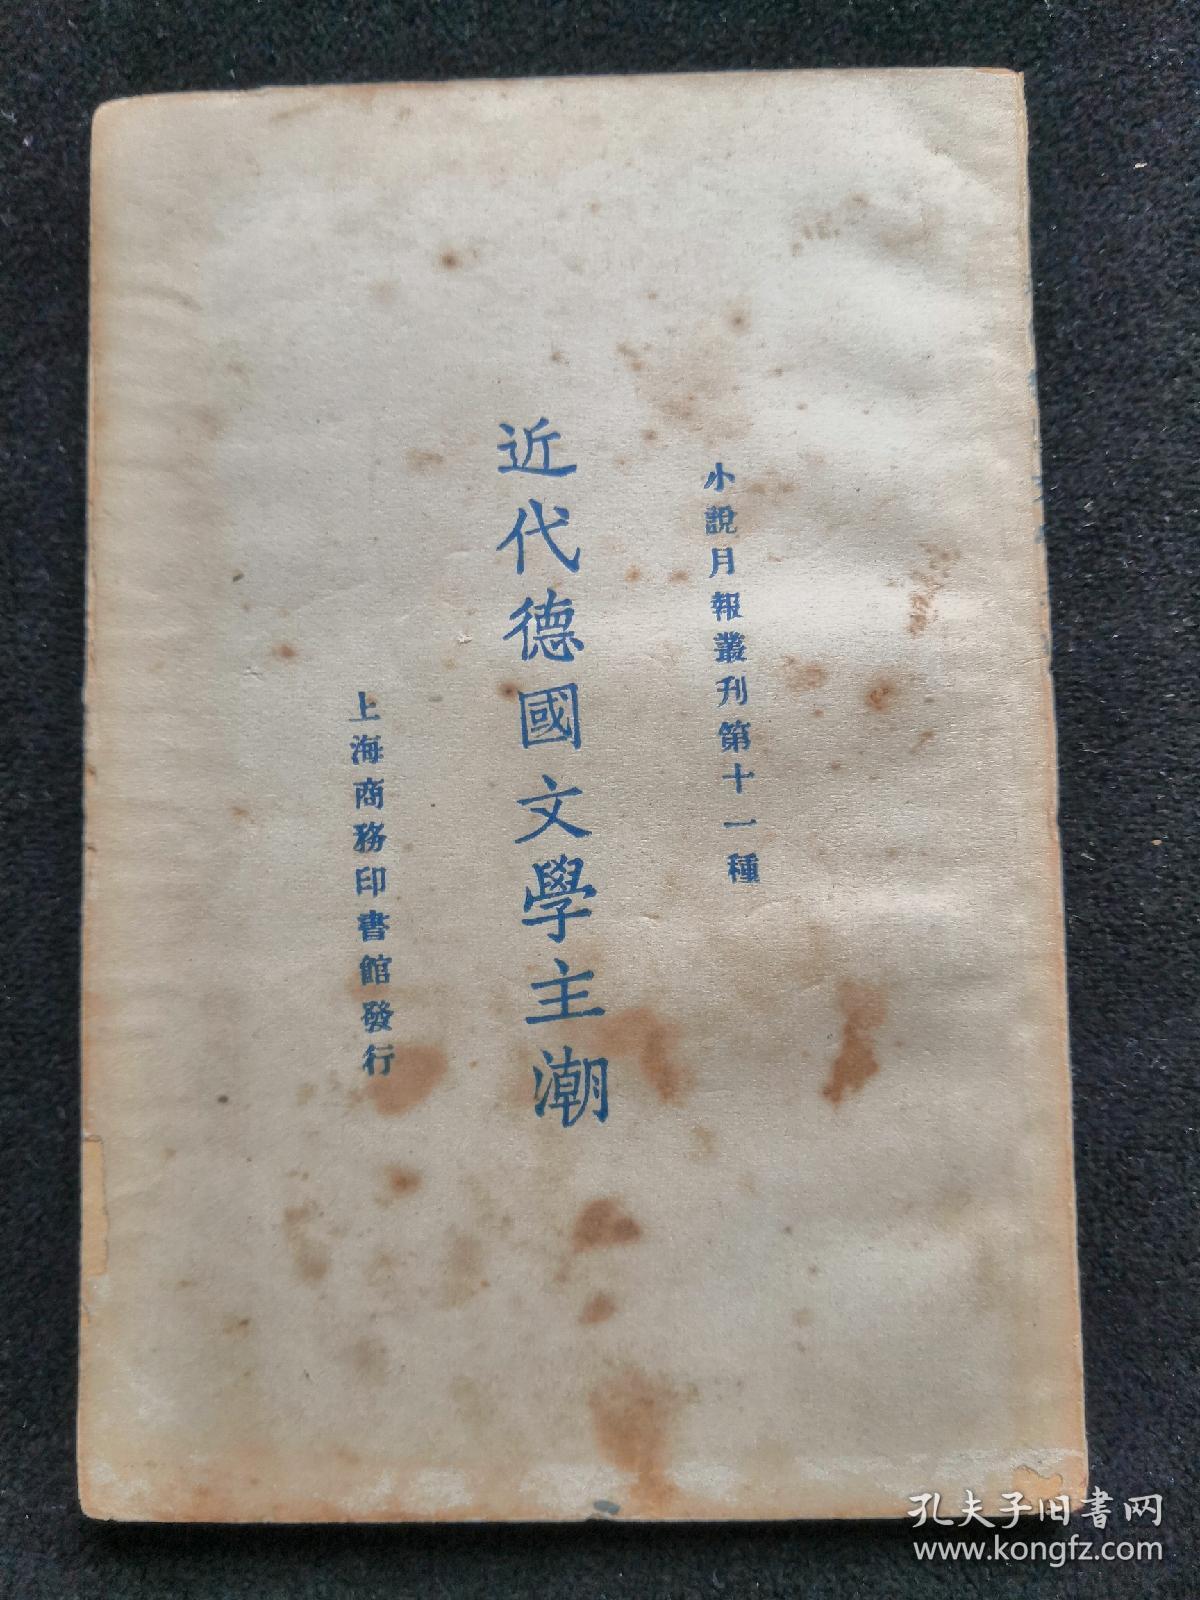 小說月報叢刊第十一種
近代德國文學主潮
上海商務印書館發行
孔夫子旧书网
www.kongfz.com